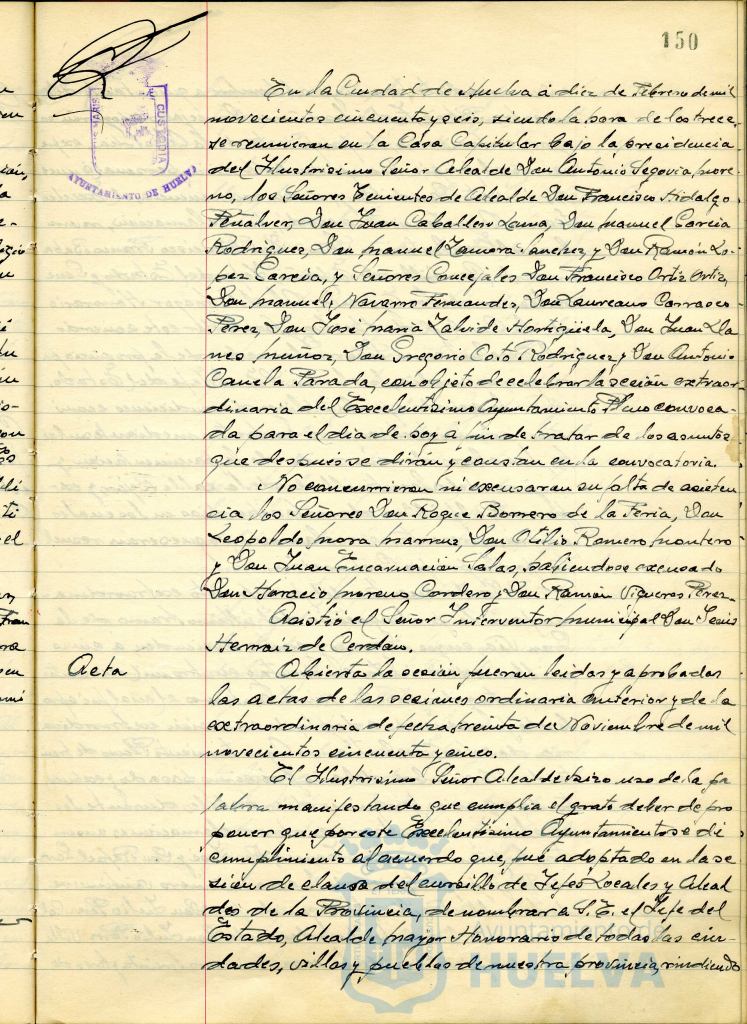 150
CUSTODIA
AYUNTAMIENTO DE HUELVA
En la Ciudad de Huelva á diez de Febrero de mil
novecientos cincuenta y seis, siendo la hora de las trece,
se reunieron en la Casa Capitular bajo la presidencia
del Ilustrisimo Señor Alcalde Don Antonio Segovia more-
no, los Señores Tenientes de Alcalde Don Francisco Hidalgo
Peñalver, Don Juan Caballero Luna, Don Manuel Garcia
Rodriguez, Don Manuel Zamora Sanchez, y Don Ramón Lo-
pez Garcia, y Señores Concejales Don Francisco Ortiz Ortiz,
Don Manuel Navarro Fernandez, Don Laureano Carrasco
Perez, Don José Maria Zalvide Hortigüela, Don Juan Lla-
nes Muñoz, Don Gregorio Coto Rodriguez y Don Antonio
Canela Parada, con objeto de celebrar la sesión extraor-
dinaria del Excelentisimo Ayuntamiento Pleno convoca-
da para el dia de hoy á fin de tratar de los asuntos
que despues se dirán y constan en la convocatoria.
No concurrieron ni excusaron su falta de asisten
cia los Señores Don Roque Borrero de la Feria, Don
Leopoldo Mora Don Otilio Romero Montero
y Don Juan Encarnación Salas, habiendose excusado
Don Horacio Moreno Cordero y Don Ramón Vigueras Perez.
Asistió el Señor Interventor Municipal Don Jesús
Hernaiz de Cerdán.
Acta
Abierta la sesión fueron leidas y aprobadas
las actas de las sesiones ordinaria anterior y de la
extraordinaria de fecha treinta de Noviembre de mil
novecientos cincuenta y cinco.
El Ilustrisimo Señor Alcalde hizo uso de la pa
labra manifestando que cumplia el grato deber de pro
poner que por este Excelentisimo Ayuntamiento se dé
cumplimiento al acuerdo que fué adoptado en la se
sión de clausura del cursillo de Jefes Locales y Alcal
des de la Provincia, de nombrar a S. E. el Jefe del
Estado, Alcalde Mayor Honorario de todas las ciu-
dades, villas y pueblos de nuestra provincia, rindiendo
Ayuntamiento de
HUELVA